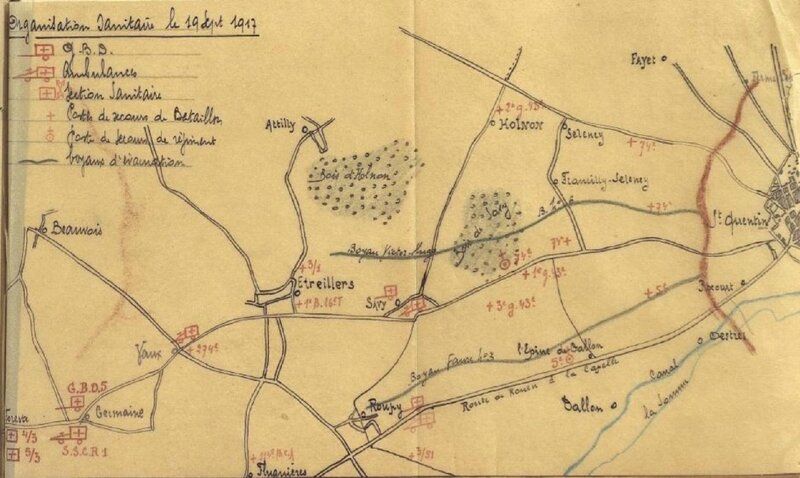 Organisation Sanitaire le 19 Sept 1917
G.B.D.
Ambulances
Section Sanitaire
Poste de secours de Bataillon
Poste de secours de régiment
boyaux d'évacuation
Fayet
Attilly
+ 2e g. 43e
Holnon
Selency
+ 74e
Bois d'Holnon
Francilly-Selency
Savy
+ 74e
St Quentin
Beauvois
Boyau Victor Hugo
74e
74e +
+ 3/1
+ 1e g. 43e
Etreillers
+ 5e
Rocourt
Savy
+ 3e g. 43e
Oestres
l'Epine de Dallon
Vaux
+ 274e
5e
Canal
la Somme
Route de Rouen à la Capelle
G.B.D. 5
Roupy
Dallon
Germaine
4/3
5/3
S.S.C.R 1
+ 3/51
Fluquières